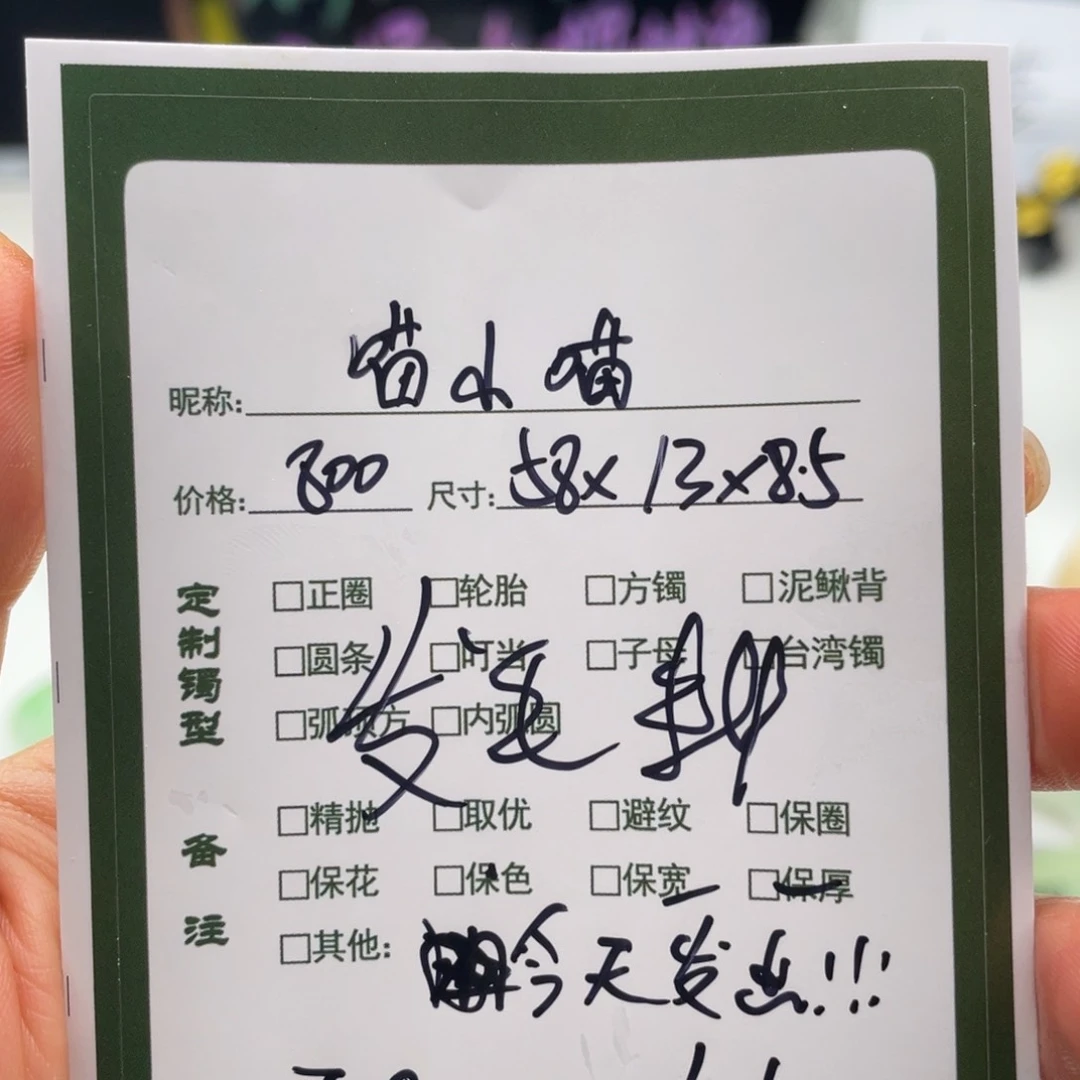 昵称: 喵小喵
价格: 800 尺寸: 58×13×8.5
定制镯型
□正圈 □轮胎 □方镯 □泥鳅背
□圆条 □叮当 □子母 □台湾镯
□弧顶方 □内弧圆
发毛料
备注
□精抛 □取优 □避纹 □保圈
□保花 □保色 □保宽 □保厚
□其他: 今天发出!!!